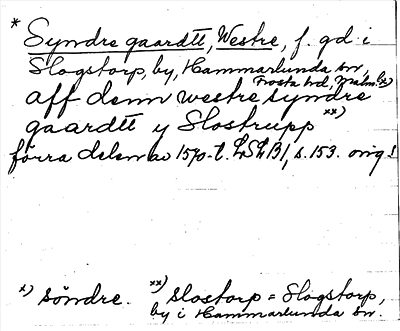 * Syndre gaardtt, Westre, f. gd i
Slogstorp, by, Hammarlunda sn,
Frosta hd, Malm. l. x)
aff denn westre syndre
gaardtt y Slostrupp xx)
förra delen av 1570-t. LSLB1, s. 153. orig!
x) söndre. xx) slostorp = Slogstorp,
by i Hammarlunda sn.